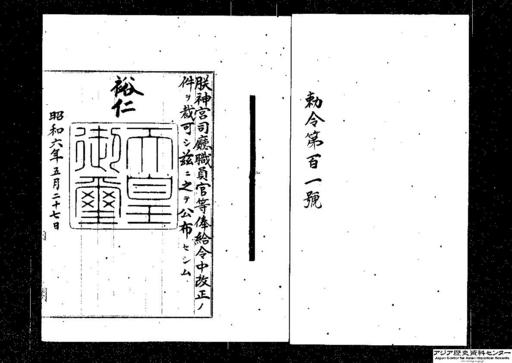 勅令第百一號
朕神宮司廳職員官等俸給令中改正ノ
件ヲ裁可シ茲ニ之ヲ公布セシム
裕仁
天皇
御璽
昭和六年五月二十七日
アジア歴史資料センター
Japan Center for Asian Historical Records